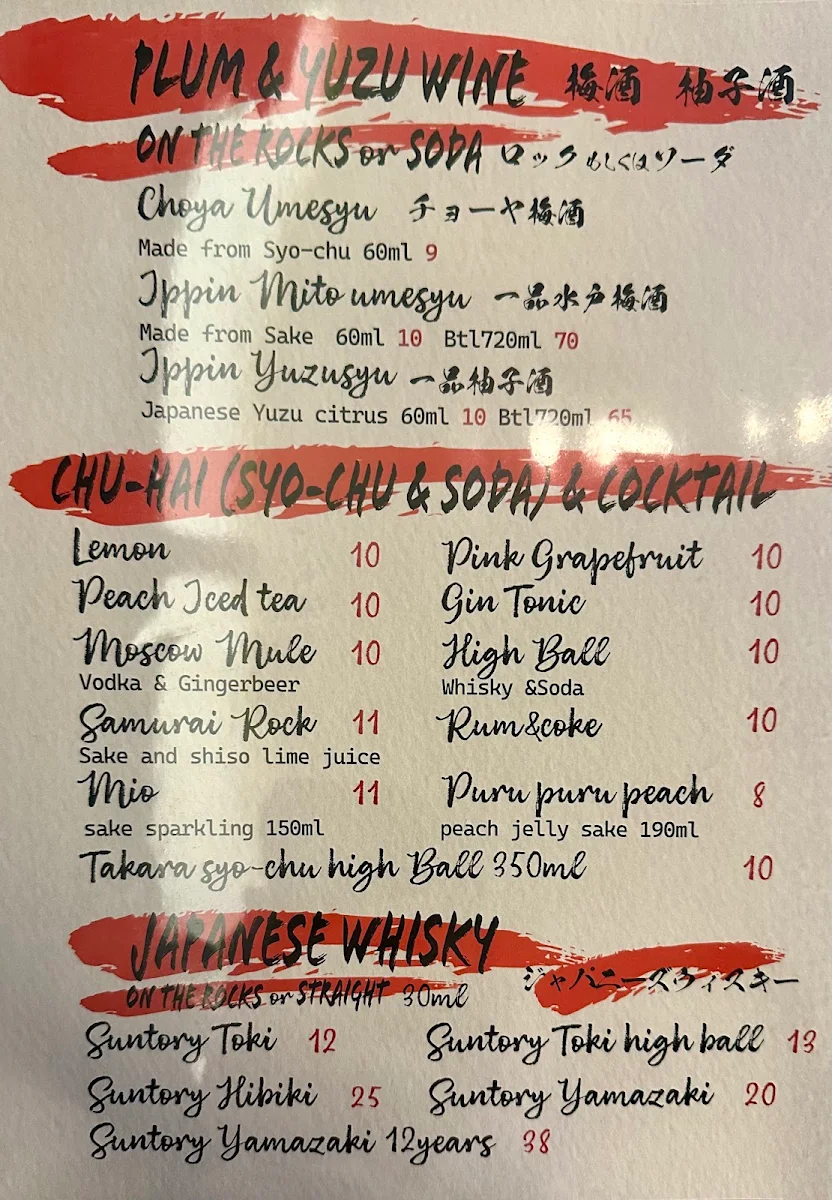 PLUM & YUZU WINE 梅酒 柚子酒
ON THE ROCKS or SODA ロック もしくは ソーダ
Choya Umesyu チョーヤ梅酒
Made from Syo-chu 60ml 9
Ippin Mito umesyu 一品水戸梅酒
Made from Sake 60ml 10 Btl720ml 70
Ippin Yuzusyu 一品柚子酒
Japanese Yuzu citrus 60ml 10 Btl720ml 65
CHU-HAI (SYO-CHU & SODA) & COCKTAIL
Lemon 10 Pink Grapefruit 10
Peach Iced tea 10 Gin Tonic 10
Moscow Mule 10 High Ball 10
Vodka & Gingerbeer Whisky &Soda
Samurai Rock 11 Rum&coke 10
Sake and shiso lime juice
Mio 11 Puru puru peach 8
sake sparkling 150ml peach jelly sake 190ml
Takara syo-chu high Ball 350ml 10
JAPANESE WHISKY ジャパニーズウィスキー
ON THE ROCKS or STRAIGHT 30ml
Suntory Toki 12 Suntory Toki high ball 13
Suntory Hibiki 25 Suntory Yamazaki 20
Suntory Yamazaki 12years 38